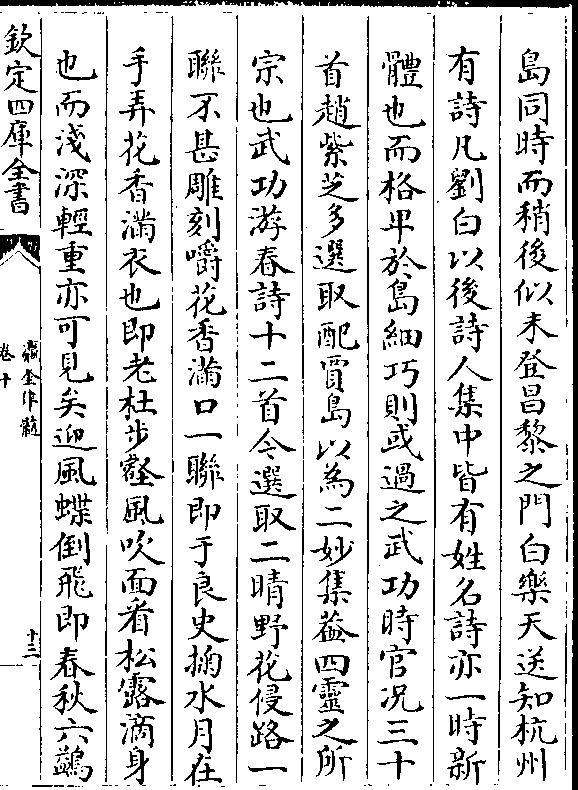 島同時而稍後似未登昌黎之門白樂天送知杭州
有詩凡劉白以後詩人集中皆有姓名詩亦一時新
體也而格卑於島細巧則或過之武功時官况三十
首趙紫芝多選取配賈島以為二妙集葢四靈之所
宗也武功游春詩十二首今選取二晴野花侵路一
聯不甚雕刻嚼花香滿口一聯即于良史掬水月在
手弄花香滿衣也即老杜步壑風吹面看松露滴身
也而淺深輕重亦可見矣迎風蝶倒飛即春秋六鷁
欽定四庫全書
瀛奎律髓
卷十
十三